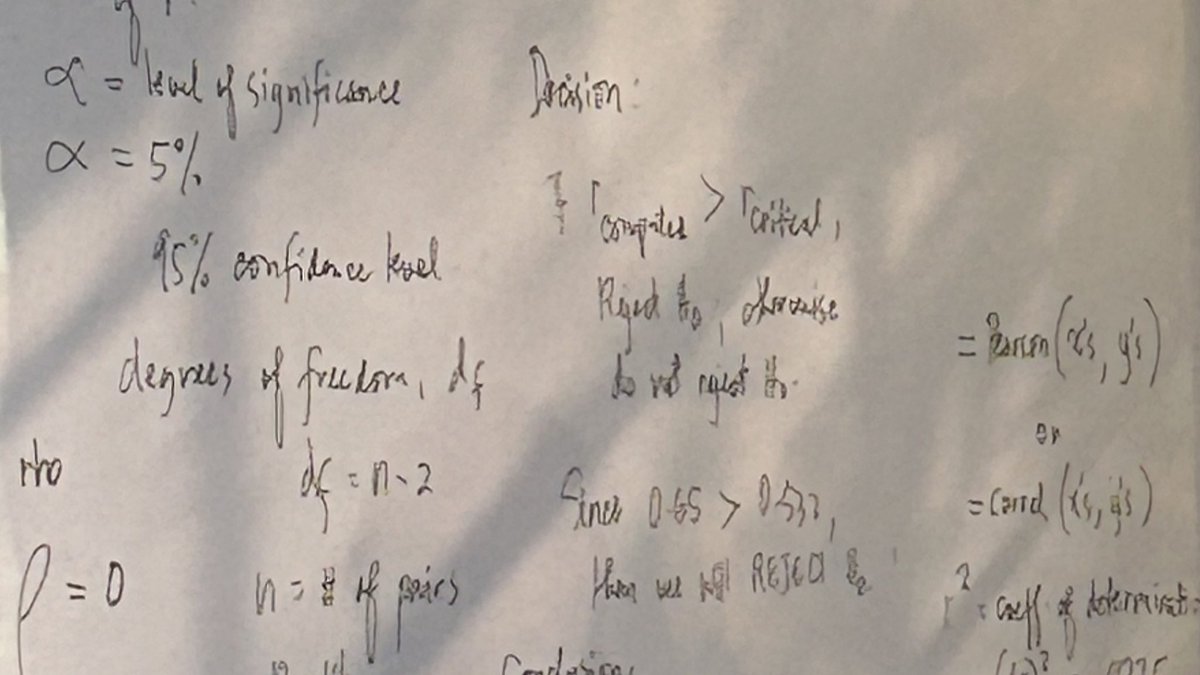 α = level of significance
α = 5%
95% confidence level
degrees of freedom, df
rho
df = n - 2
ρ = 0
n = # of pairs
Decision:
If r computed > r critical,
Reject H₀, otherwise
do not reject H₀.
Since 0.65 > 0.532,
then we will REJECT H₀
Conclusion:
= Pearson (x's, y's)
or
= Correl (x's, y's)
r² = coeff of determinat